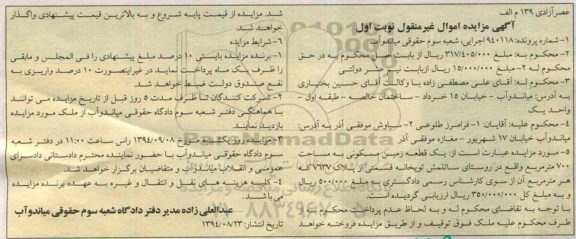 عصرآزادی ۱۳۹ م الف
آگهی مزایده اموال غیرمنقول نوبت اول
۱- شماره پرونده: ۹۴۰۱۱۸ اجرایی، شعبه سوم حقوقی میاندوآب
۲- محکوم به: مبلغ ۳۱۷/۴۰۵/۰۰۰ ریال از بابت اصل محکوم به در حق
محکوم له ۲- مبلغ ۱۵/۰۰۰/۰۰۰ ریال ازبابت نیم عشر دولتی
۳- محکوم له: آقای علی مصطفی زاده با وکالت آقای حسین بختیاری
به آدرس: میاندوآب - خیابان ۱۵ خرداد - ساختمان خالصه - طبقه اول -
واحد یک
۴- محکوم علیه: آقایان: ۱- فرامرز طلوعی ۲- سیاوش موفقی آذر به آدرس:
میاندوآب خیابان ۱۷ شهریور - مغازه موفقی آذر
۵- مورد مزایده عبارت است از: یک قطعه زمین مسکونی به مساحت
۷۰۰ مترمربع واقع در روستای ساتلمش توپخانه قسمتی از پلاک ۷۶۳۷ که
هر مترمربع آن از سوی کارشناس رسمی دادگستری به مبلغ ۵۰۰/۰۰۰ ریال
و به مبلغ کل ۳۵۰/۰۰۰/۰۰۰ ریال ارزیابی گردیده است.
با توجه به تقاضای محکوم له و به لحاظ عدم پرداخت محکوم به از
طرف محکوم علیه ملک فوق توقیف و از طریق مزایده فروخته خواهد
شد. مزایده از قیمت پایه شروع و به بالاترین قیمت پیشنهادی واگذار
خواهد شد.
۶- شرایط مزایده
۱- برنده مزایده بایستی ۱۰ درصد مبلغ پیشنهادی را فی المجلس و مابقی
را ظرف یک ماه پرداخت نماید در غیراینصورت ۱۰ درصد واریزی به
نفع صندوق دولت ضبط خواهد شد.
۲- شرکت کنندگان تا ظرف مدت ۵ روز قبل از تاریخ مزایده می توانند
با هماهنگی دفتر شعبه سوم دادگاه حقوقی میاندوآب از ملک مورد مزایده
بازدید نمایند.
۳- مزایده روز یکشنبه مورخ ۱۳۹۴/۰۹/۰۸ راس ساعت ۱۱:۰۰ در دفتر شعبه
سوم دادگاه حقوقی میاندوآب با حضور نماینده محترم دادستان دادسرای
عمومی و انقلاب میاندوآب و متقاضیان برگزار خواهد شد.
۴- کلیه هزینه های نقل و انتقال و غیره به عهده برنده مزایده
می باشد.
عبدالعلی زاده مدیر دفتر دادگاه شعبه سوم حقوقی میاندوآب
تاریخ انتشار: ۱۳۹۴/۰۸/۲۳